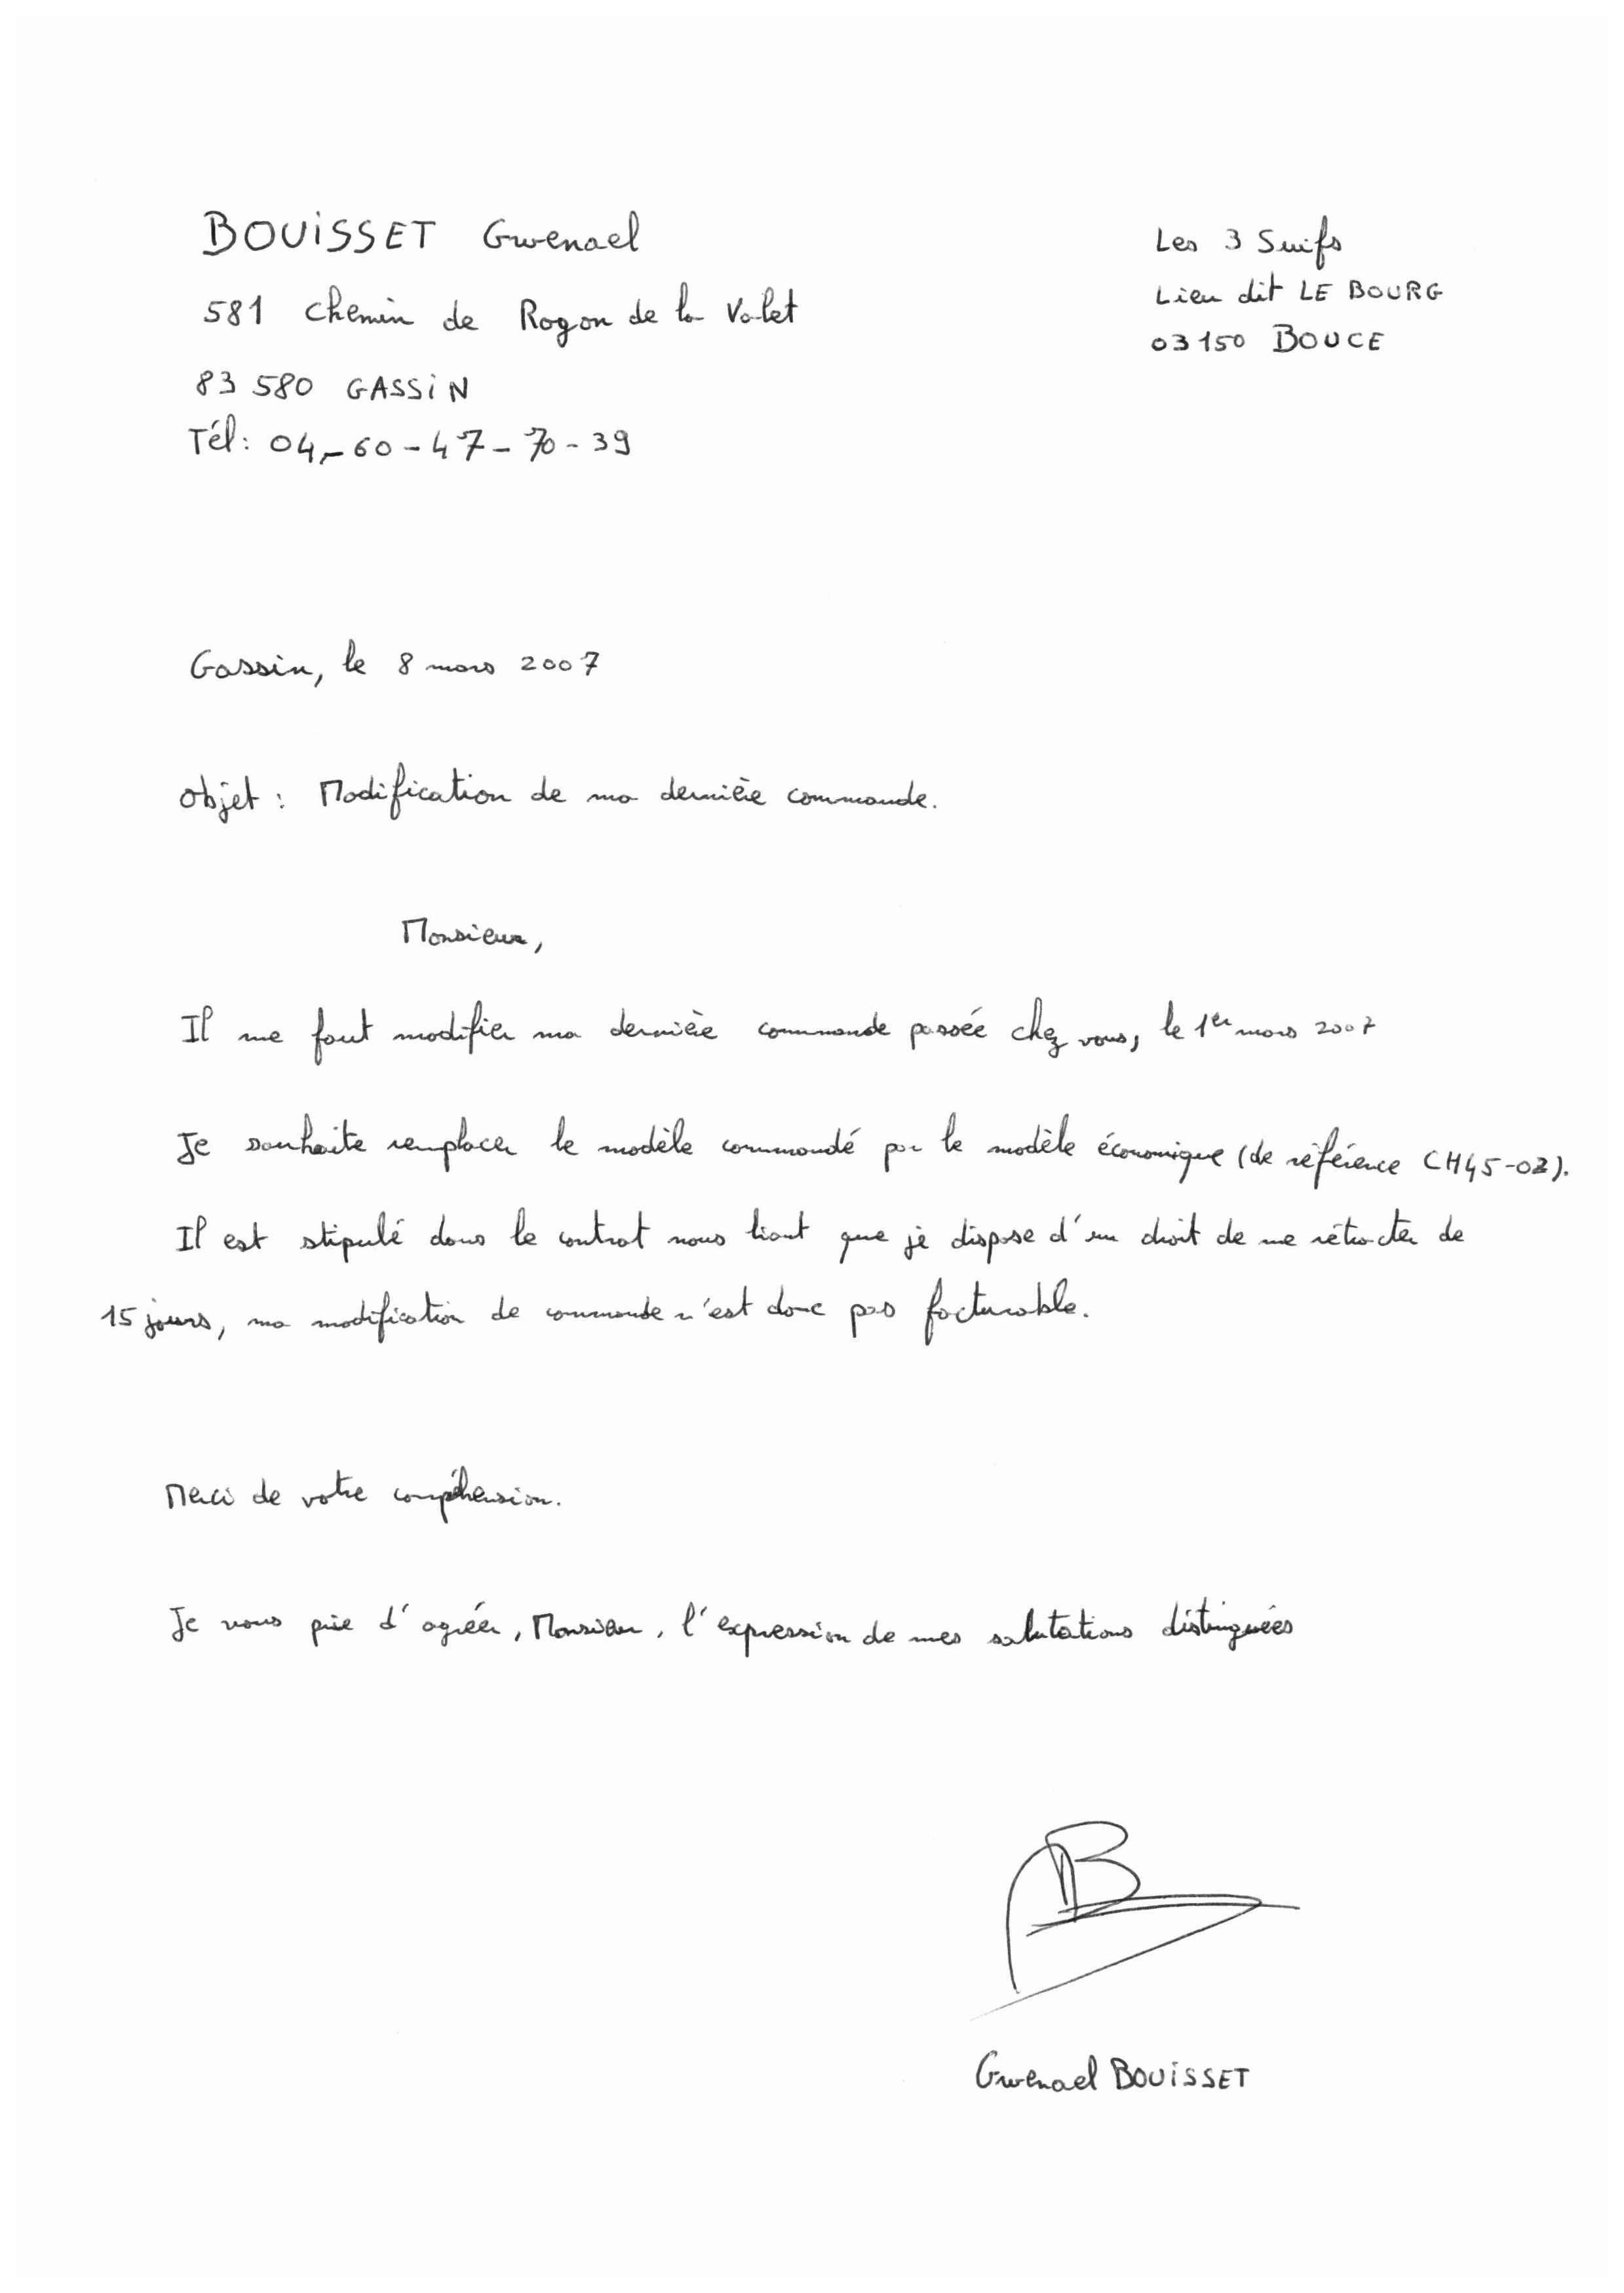 BOUISSET Gwenael
581 chemin de Rogon de la Valet
83 580 GASSIN
Tél : 04-60-47-70-39
Les 3 Suifs
Lieu dit LE BOURG
03150 BOUCE
Gassin, le 8 mars 2007
Objet : Modification de ma dernière commande.
Monsieur,
Il me faut modifier ma dernière commande passée chez vous, le 1er mars 2007
Je souhaite remplacer le modèle commandé par le modèle économique (de référence CH45-03).
Il est stipulé dans le contrat nous liant que je dispose d'un droit de me rétracter de
15 jours, ma modification de commande n'est donc pas facturable.
Merci de votre compréhension.
Je vous prie d'agréer, Monsieur, l'expression de mes salutations distinguées
B
Gwenael BOUISSET